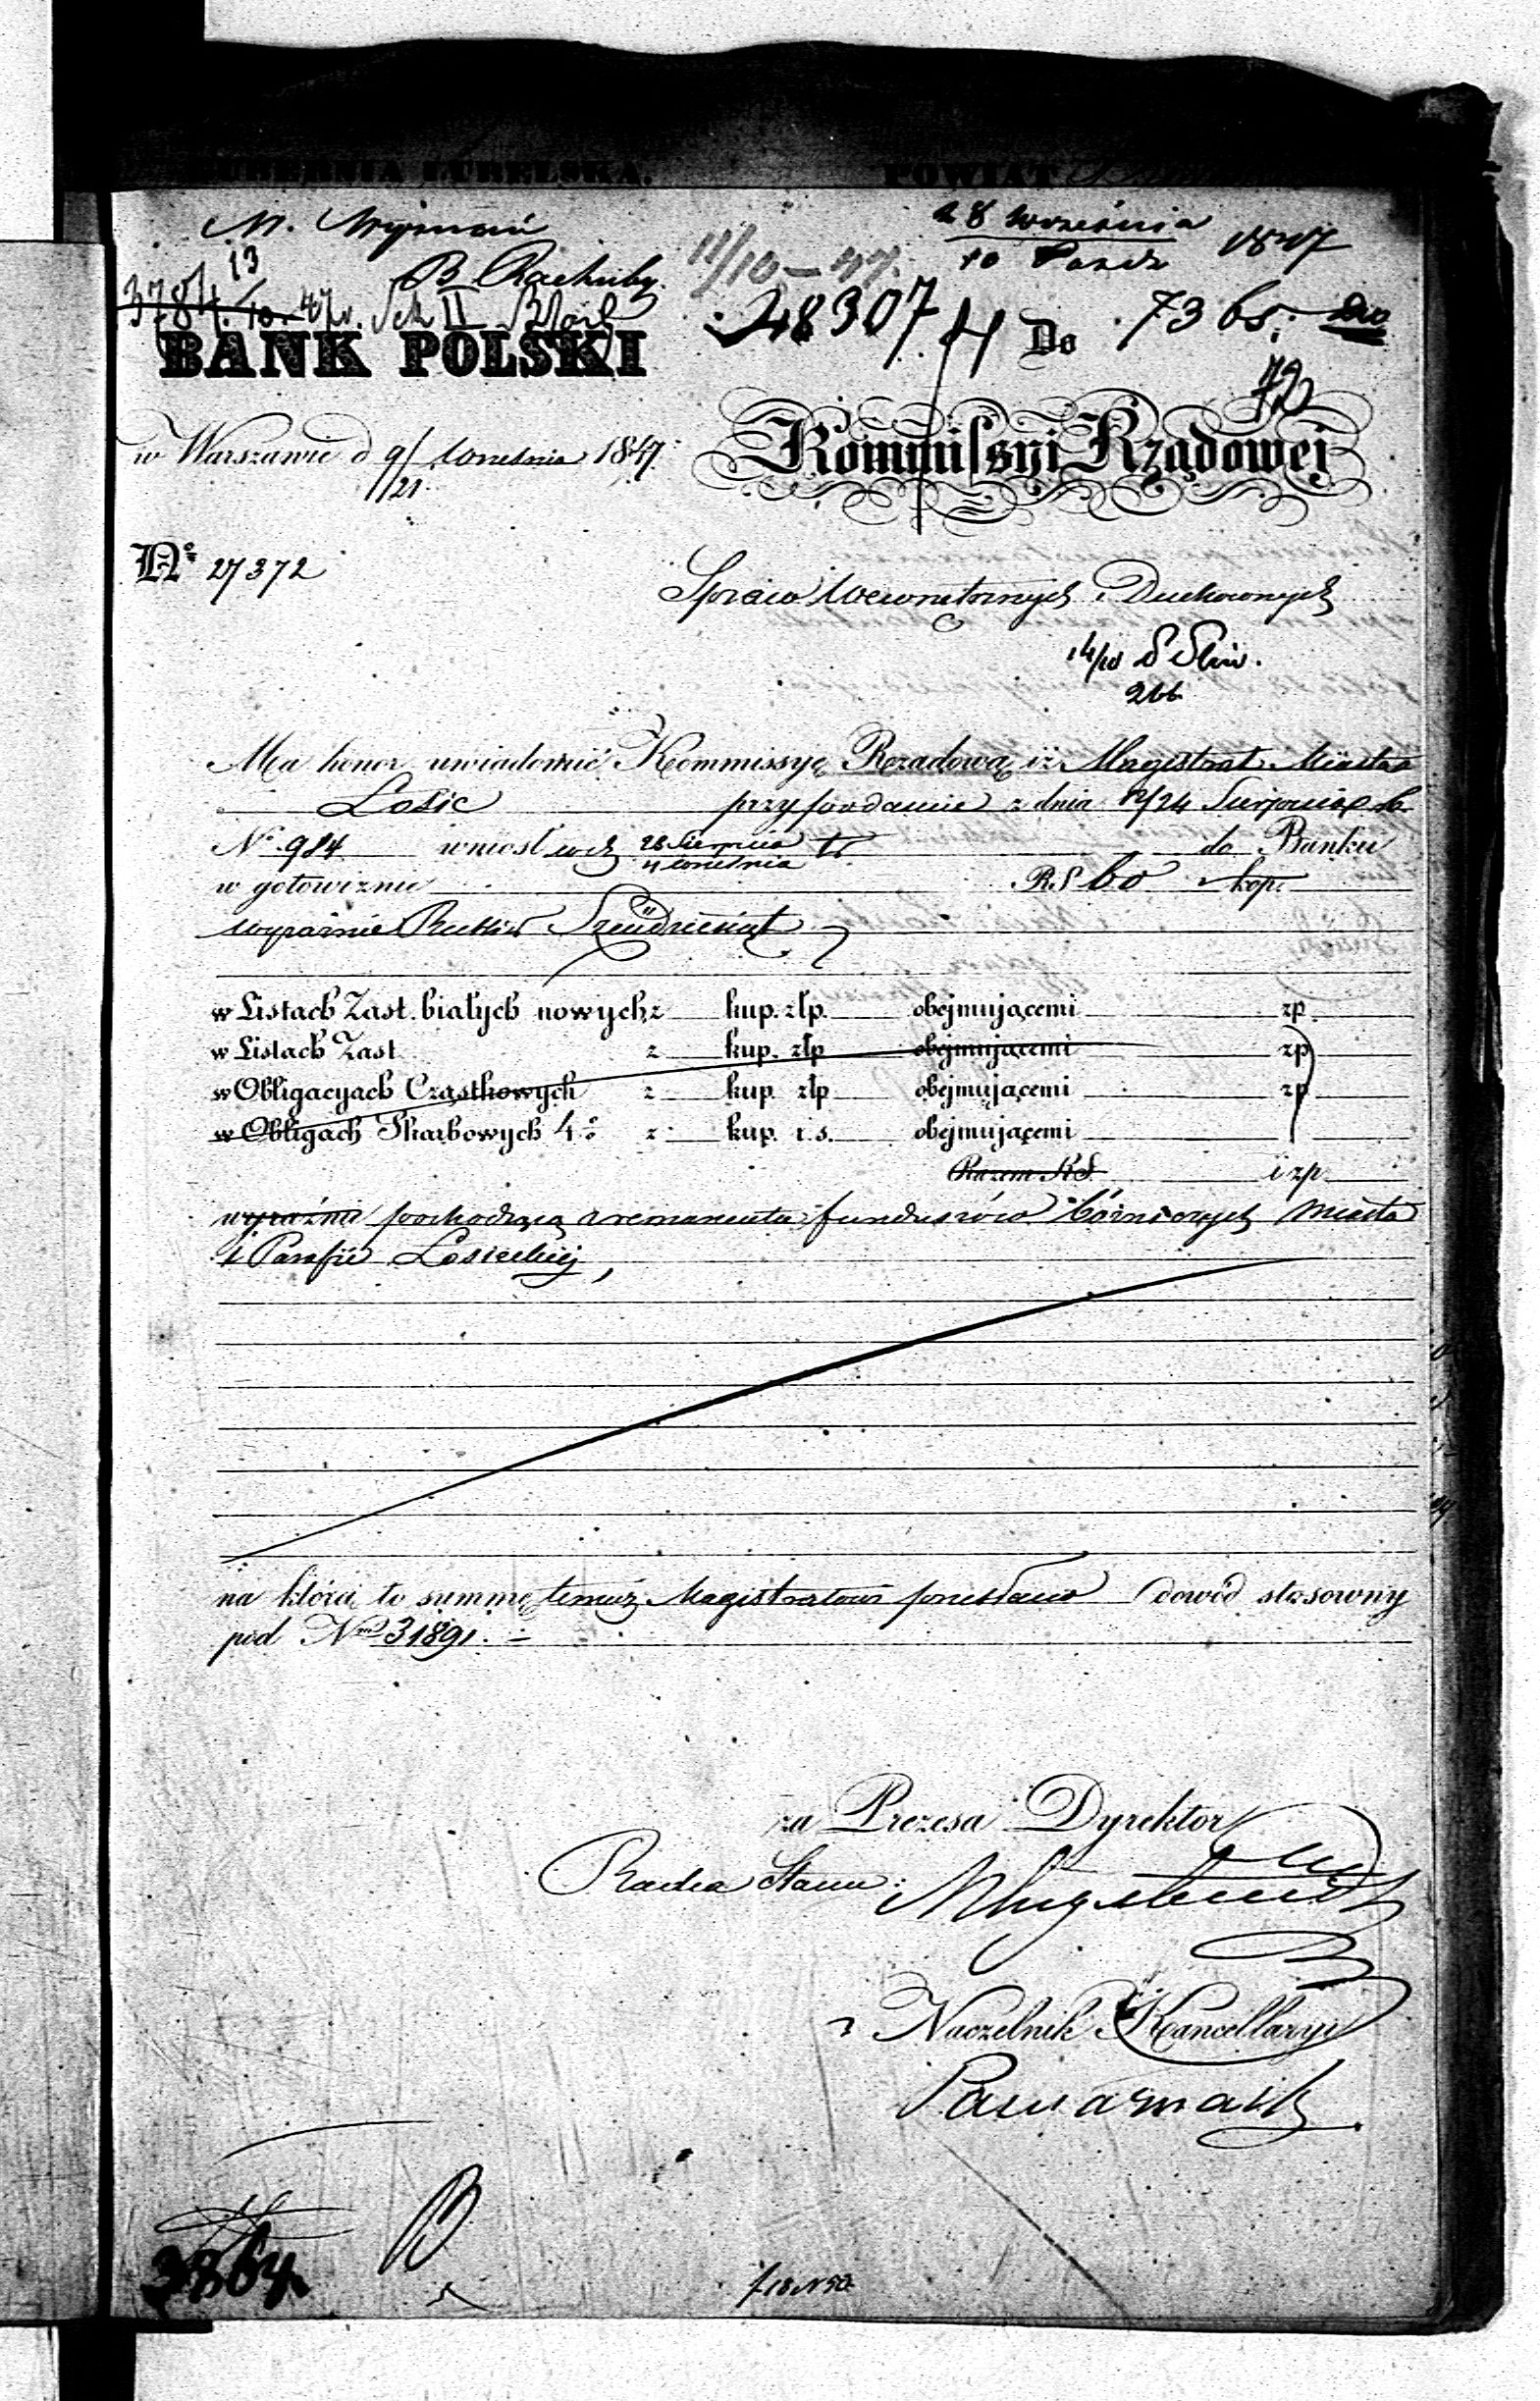 GUBERNIA LUBELSKA. POWIAT
28 Września
10 Paźdz 1847
B. Rachuby.
11/10 – 47.
3784 13/10 47 r. Sek II
48307 Do 7365
72
BANK POLSKI
w Warszawie d 9/21 Września 1847.
Kommissyi Rządowej
N° 27372
Spraw Wewnętrznych i Duchownych
14/10
266
Ma honor uwiadomić Kommissyę Rządową iż Magistrat Miasta
Łosic przy podaniu z dnia 12/24 Sierpnia r. b.
N° 984 wniósł w d. 28 Sierpnia do Banku
w gotowiznie RS 60 kop.
wyraźnie Rubli Sześćdziesiąt
w Listach Zast. białych nowych z kup. złp. obejmującemi zp
w Listach Zast z kup. złp obejmującemi zp
w Obligacyach Cząstkowych z kup złp obejmującemi zp
w Obligach Skarbowych 4% z kup. r. s. obejmującemi
Razem RS. i zp
wyraźnie pochodzącą z remanentu funduszów Bóżniczych Miasta
i Parafii Łosickiej,
na którą to summę temuż Magistratowi przesłano dowód stosowny
pod Nrem 31891. –
za Prezesa Dyrektor
Radca Stanu
Naczelnik Kancellaryi
3864.
B